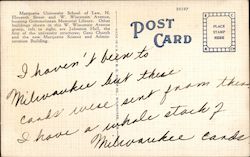 Marquette University School of Law, N.
Eleventh Street and W. Wisconsin Avenue,
housing Grimmelsman Memorial Library. Other
buildings shown in this W. Wisconsin Avenue
group, left to right, are Johnston Hall, the
first of the university structures; Gesu Church
and the new Marquette Science and Admin-
istration Building.
POST
CARD
PLACE
STAMP
HERE
I haven't been to
Milwaukee but these
cards were sent from there
I have a whole stack of
Milwaukee cards